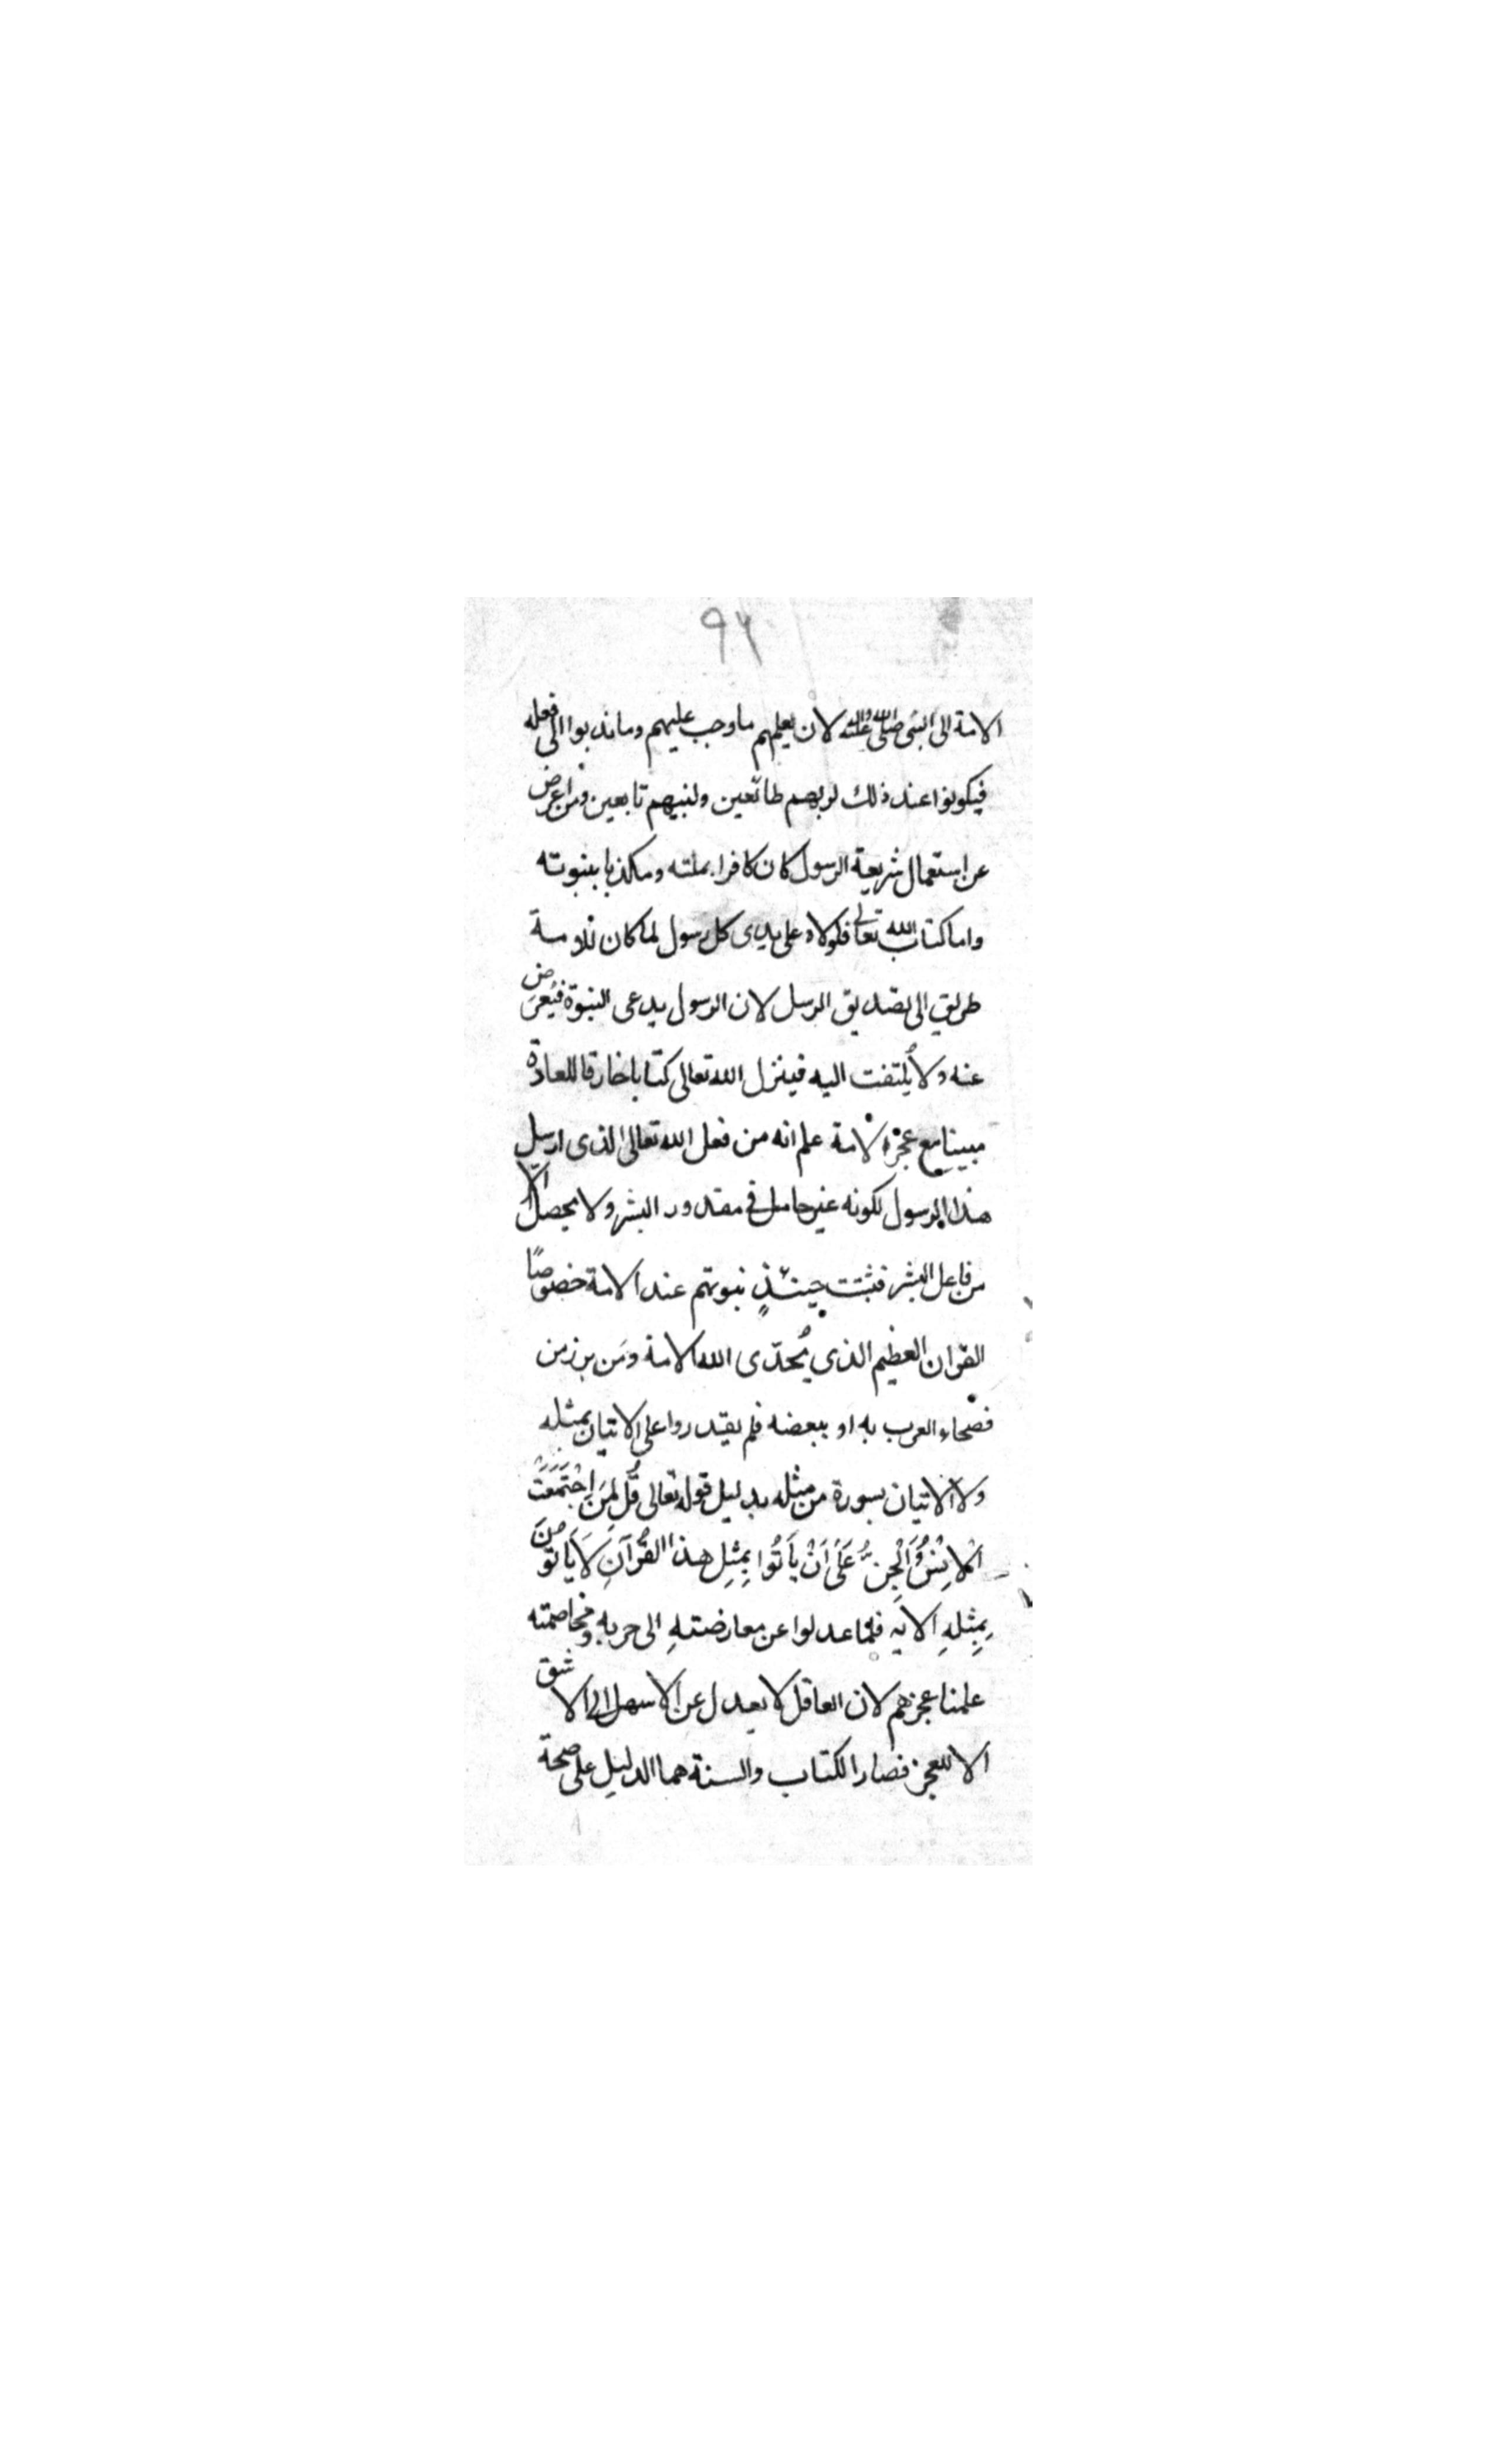 ٩٦
الامة الى النبى صلى الله عليه لان يعلمهم ماوجب عليهم وماندبوا الى فعله
فيكونوا عند ذلك لربهم طائعين ولنبيهم تابعين ومن اعرض
عن استعمال شريعة الرسول كان كافرا بملته ومكذبا بنبوته
واما كتاب الله تعالى فلولاه على يدى كل رسول لما كان للامة
طريق الى تصديق الرسل لان الرسول يدعى النبوة فيُعرَض
عنه ولا يُلتفت اليه فينزل الله تعالى كتابا خارقا للعادة
مبينا مع عجز الامة علم انه من فعل الله تعالى الذى ارسل
هذا الرسول لكونه غير حاصل فى مقدور البشر ولا يحصل الّا
من فاعل البشر فثبتت حينئذٍ نبوتهم عند الامة خصوصًا
القران العظيم الذى يُحدّى الله الامة ومَن برز من
فصحاء العرب به او ببعضه فلم يقدروا على الاتيان بمثله
ولا الاتيان بسورة من مثله بدليل قوله تعالى قُل لِمَنِ اِجْتَمَعَتْ
اْلاِنْسُ وَالْجِنُّ عَلَىَ اَنْ يَأتُوا بِمِثْلِ هذا القُرْآنِ لَا يَأتوُنَ
بِمِثلِهِ الايه فلمّا عدلوا عن معارضتهِ الى حربهِ ومخاصمته
علمنا عجزهم لان العاقل لا يعدل عن الاسهل الى الاشق
الا للعجز فصار الكتاب والسنة هما الدليل على صحة